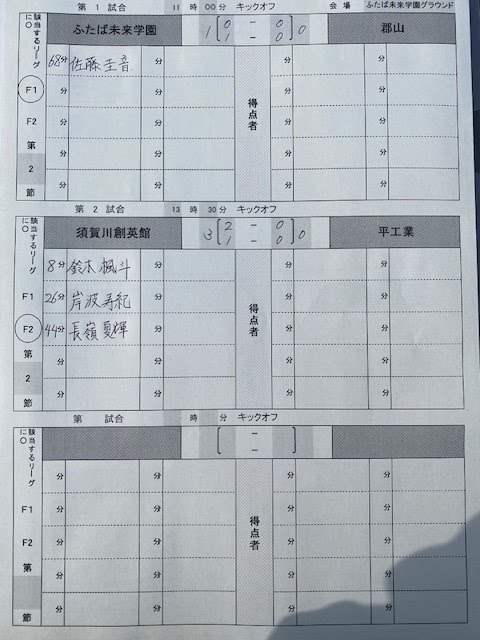 第 1 試合 11 時 00分 キックオフ 会場 ふたば未来学園グラウンド
該当するリーグに○ ふたば未来学園 1 [0 - 0] 0 郡山
[1 - 0]
68分 佐藤圭音 分 分 分
F1 分 分 得点者 分 分
F2 分 分 分 分
第 2 節 分 分 分 分
分 分 分 分
第 2 試合 13 時 30分 キックオフ
該当するリーグに○ 須賀川創英館 3 [2 - 0] 0 平工業
[1 - 0]
8分 鈴木楓斗 分 分 分
F1 26分 岸波寿紀 分 得点者 分 分
F2 44分 長嶺夏輝 分 分 分
第 2 節 分 分 分 分
分 分 分 分
第 試合 時 分 キックオフ
該当するリーグに○ [ - ]
-
分 分 分 分
F1 分 分 得点者 分 分
F2 分 分 分 分
第 節 分 分 分 分
分 分 分 分